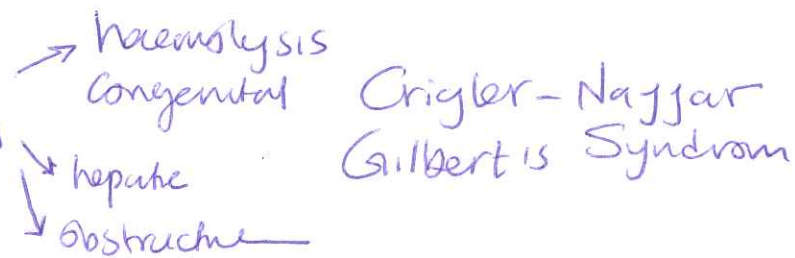 haemolysis
Congenital Crigler-Najjar
Gilbert's Syndrom
hepatic
Obstructive